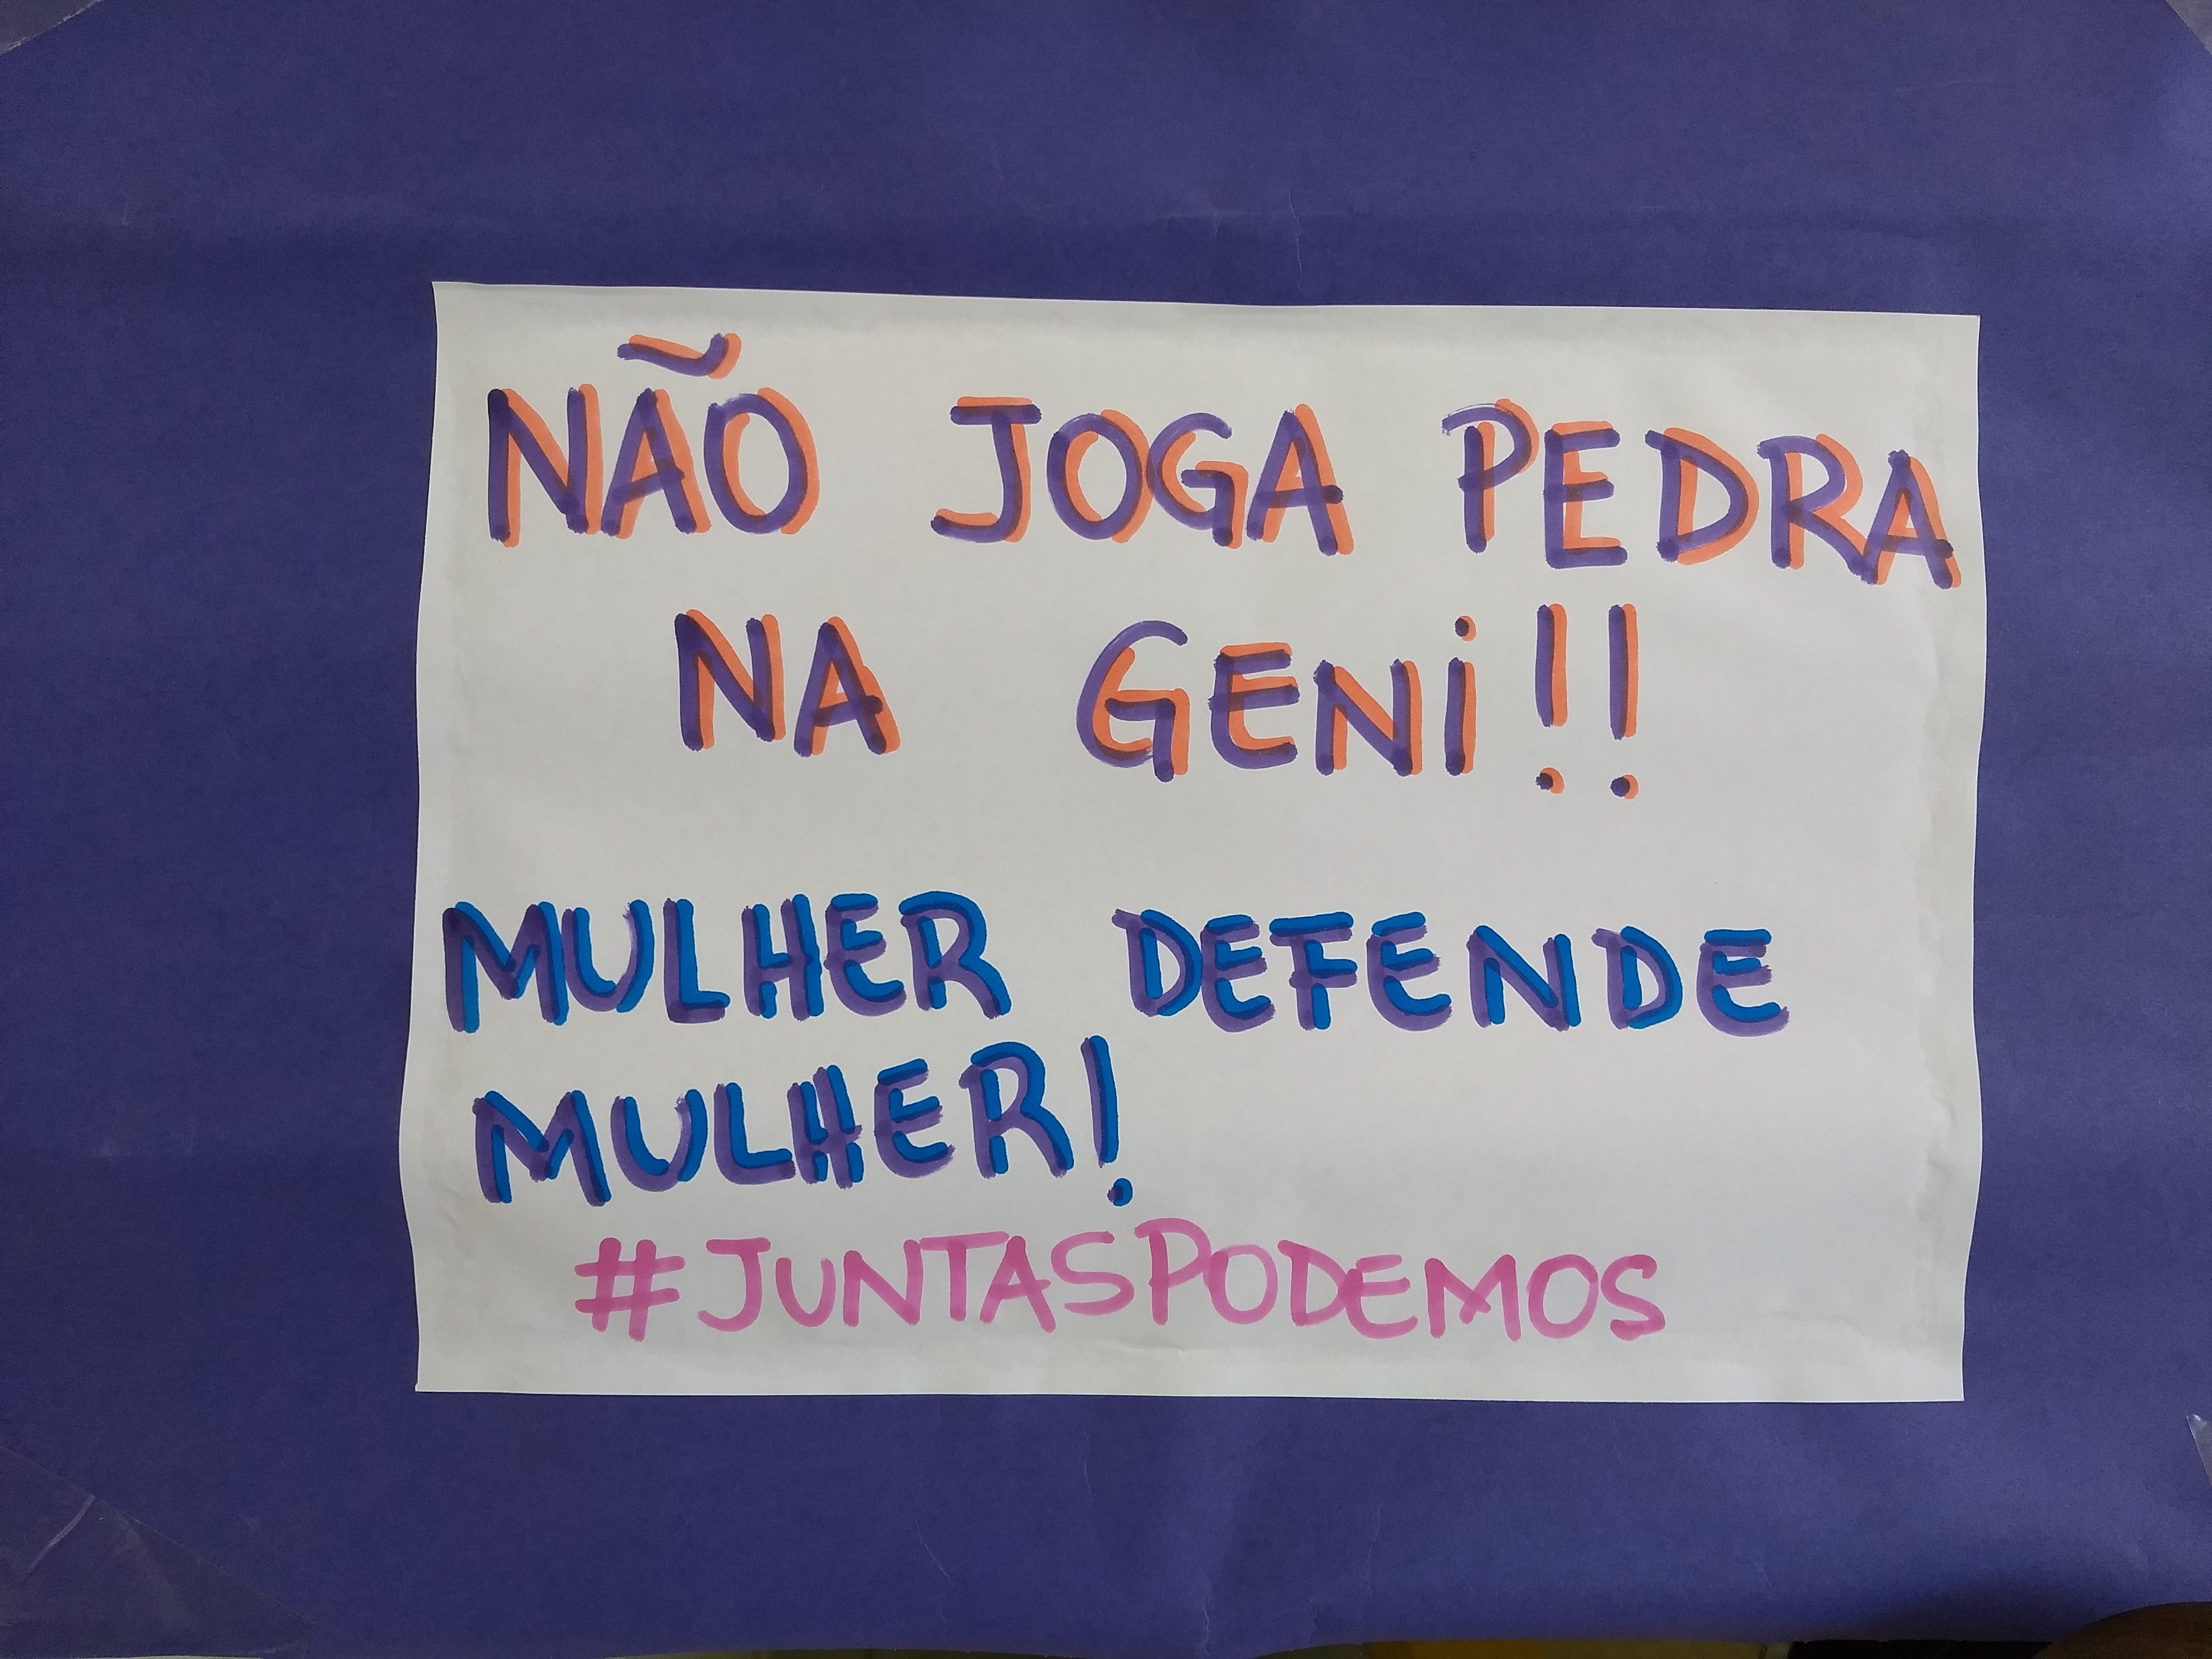 NÃO JOGA PEDRA
NA GENi!!
MULHER DEFENDE
MULHER!
#JUNTASPODEMOS